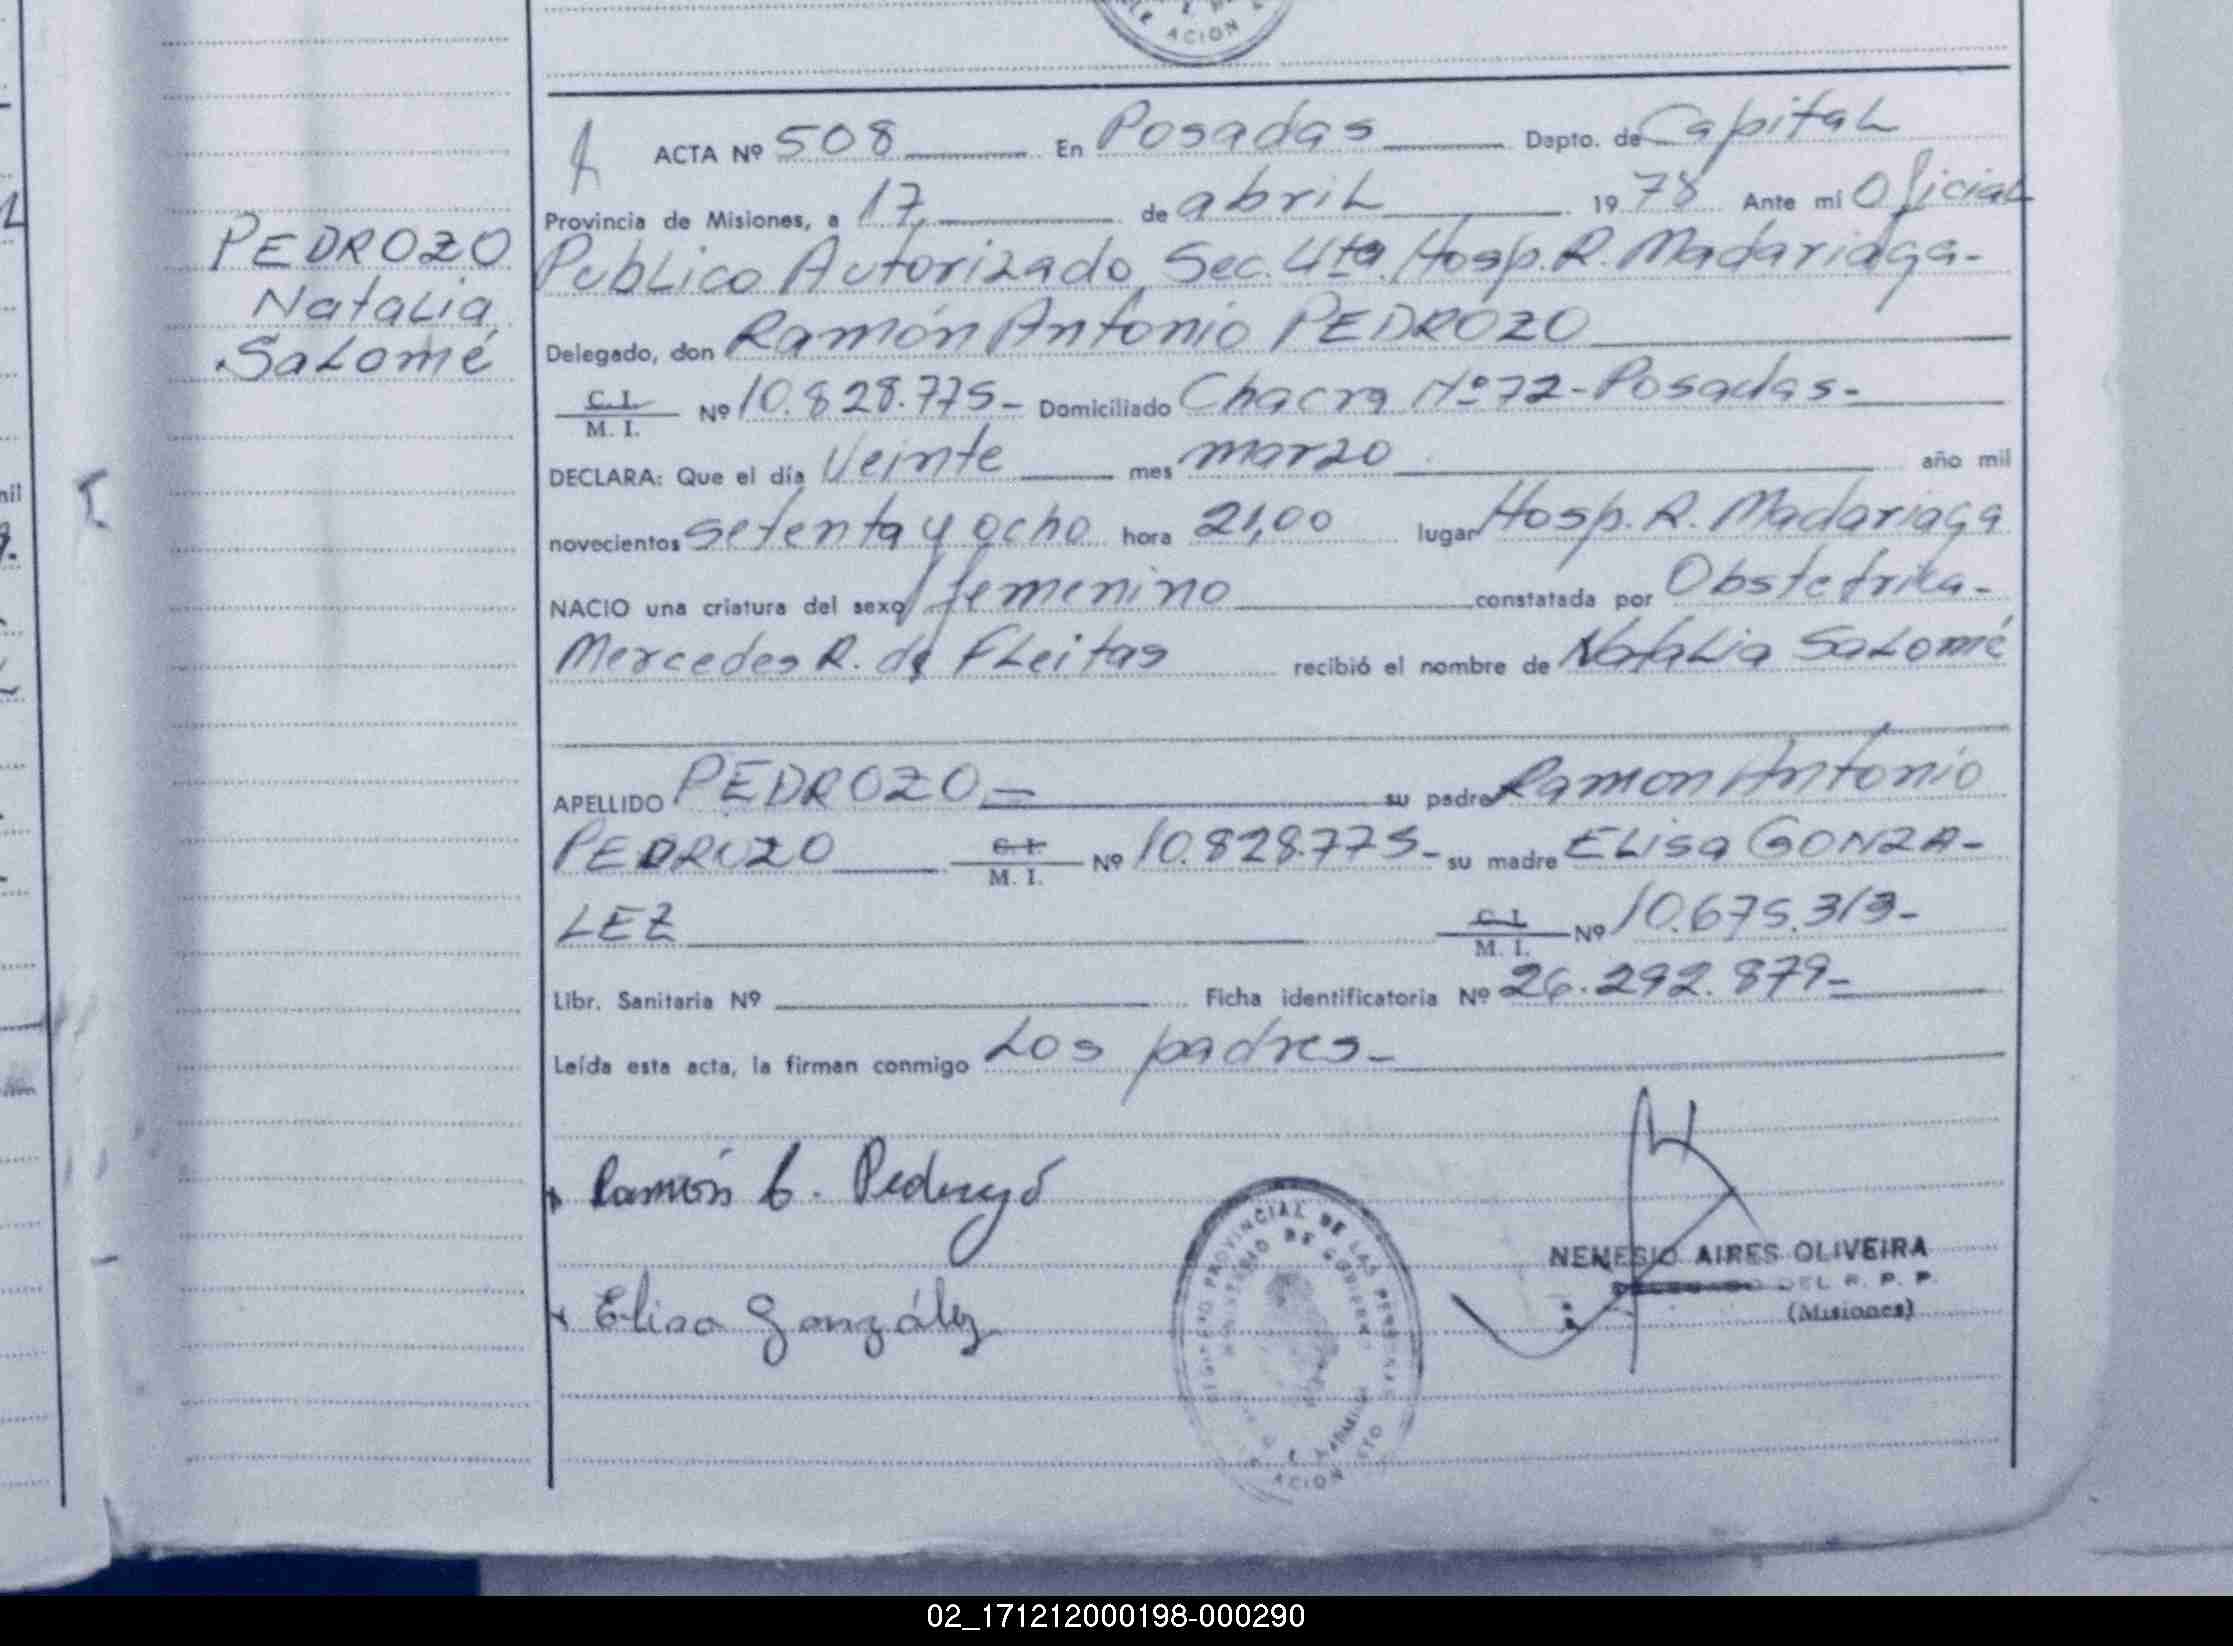 ACION
ACTA Nº 508 En Posadas Dapto. de Capital
Provincia de Misiones, a 17 de abril 1978 Ante mi Oficial
Publico Autorizado Sec. 4ta. Hosp. R. Madariaga-
Delegado, don Ramón Antonio PEDROZO
C. I. / M. I. Nº 10.828.775- Domiciliado Chacra Nº 72-Posadas-
DECLARA: Que el día Veinte mes marzo año mil
novecientos setenta y ocho hora 21,00 lugar Hosp. R. Madariaga
NACIO una criatura del sexo femenino constatada por Obstetrica-
Mercedes R. de Fleitas recibió el nombre de Natalia Salomé
APELLIDO PEDROZO- su padre Ramon Antonio
PEDROZO C. I. / M. I. Nº 10.828.775- su madre Elisa GONZA-
LEZ C. I. / M. I. Nº 10.675.313-
Libr. Sanitaria Nº Ficha identificatoria Nº 26.292.879-
Leída esta acta, la firman conmigo Los padres-
PEDROZO
Natalia
Salomé
Ramón A. Pedrozo
Elisa González
REGISTRO PROVINCIAL DE LAS PERSONAS
MINISTERIO DE GOBIERNO
NEMESIO AIRES OLIVEIRA
DEL R. P. P.
(Misiones)
02_171212000198-000290